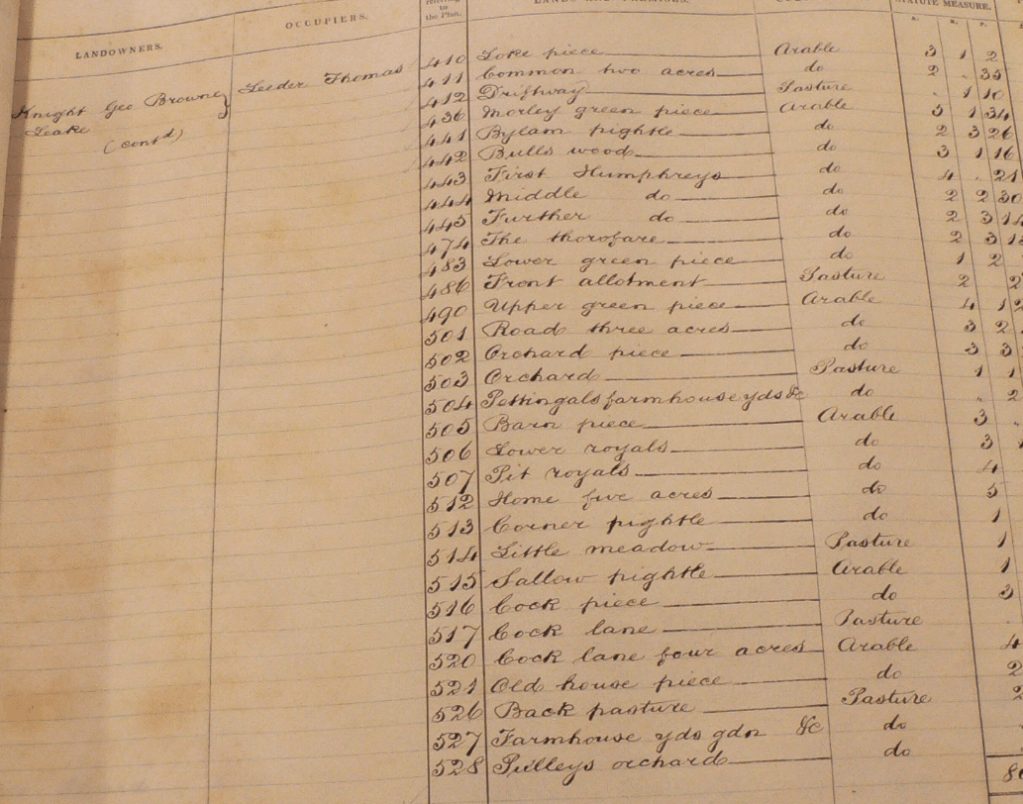 LANDOWNERS. OCCUPIERS. referring to the Plan. LANDS AND PREMISES. STATUTE MEASURE.
A. R. P.
Knight Gee Browne Leeder Thomas 410 Loke piece Arable 3 1 2
Leake 411 Common two acres do 2 . 35
(contd) 412 Driftway Pasture . 1 10
436 Morley green piece Arable 3 1 34
441 Bylam pightle do 2 3 26
442 Bulls wood do 3 1 16
443 First Humphreys do 4 . 21
444 Middle do do 2 2 30
445 Further do do 2 3 14
474 The thorofare do 2 3
483 Lower green piece do 1 2
486 Front allotment Pasture 2
490 Upper green piece Arable 4 1
501 Road three acres do 3 2
502 Orchard piece do 3 3
503 Orchard Pasture 1 1
504 Pettingals farmhouse yds &c do . 2
505 Barn piece Arable 3 .
506 Lower royals do 3
507 Pit royals do 4
512 Home five acres do 5
513 Corner pightle do 1
514 Little meadow Pasture 1
515 Sallow pightle Arable 1
516 Cock piece do 3
517 Cock lane Pasture .
520 Cock lane four acres Arable 4
521 Old house piece do 2
526 Back pasture Pasture 2
527 Farmhouse yds gdn &c do
528 Pulleys orchard do